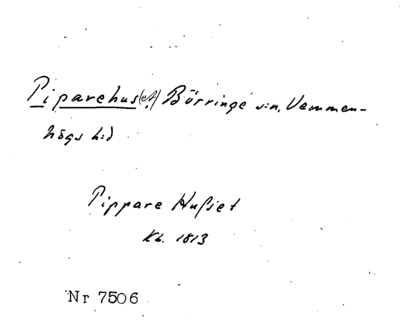 Piparehus(et) Börringe s:n, Vemmen-
högs hd
Pippare Hußet
Kb. 1813
Nr 7506